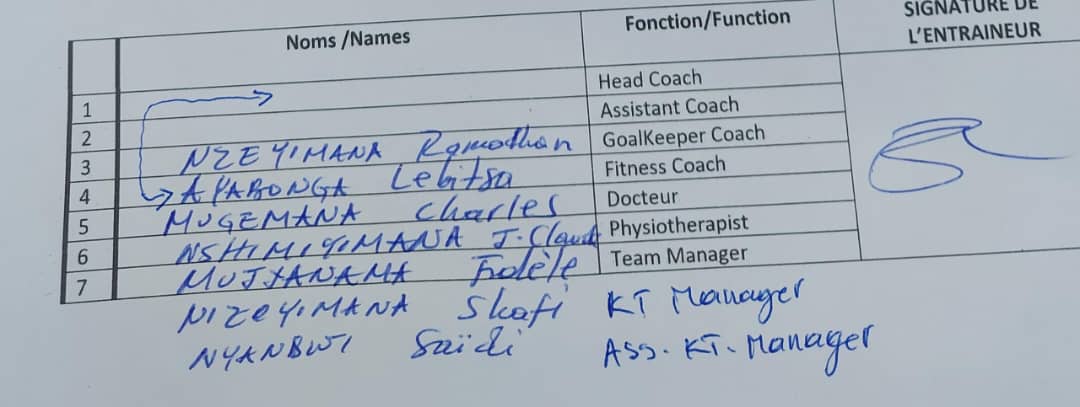 Noms /Names Fonction/Function SIGNATURE DE L'ENTRAINEUR
1 Head Coach
2 Assistant Coach
3 NZEYIMANA Ramadhan GoalKeeper Coach
4 AYABONGA Lebitsa Fitness Coach
5 MUGEMANA Charles Docteur
6 NSHIMIYIMANA J.Claude Physiotherapist
7 MUJYANAMA Fidèle Team Manager
NIZEYIMANA Skafi KT Manager
NYANBWI Saïdi Ass. KT. Manager